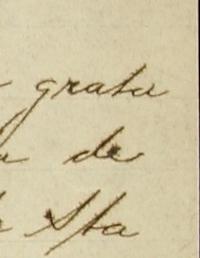 grata
de
Sta